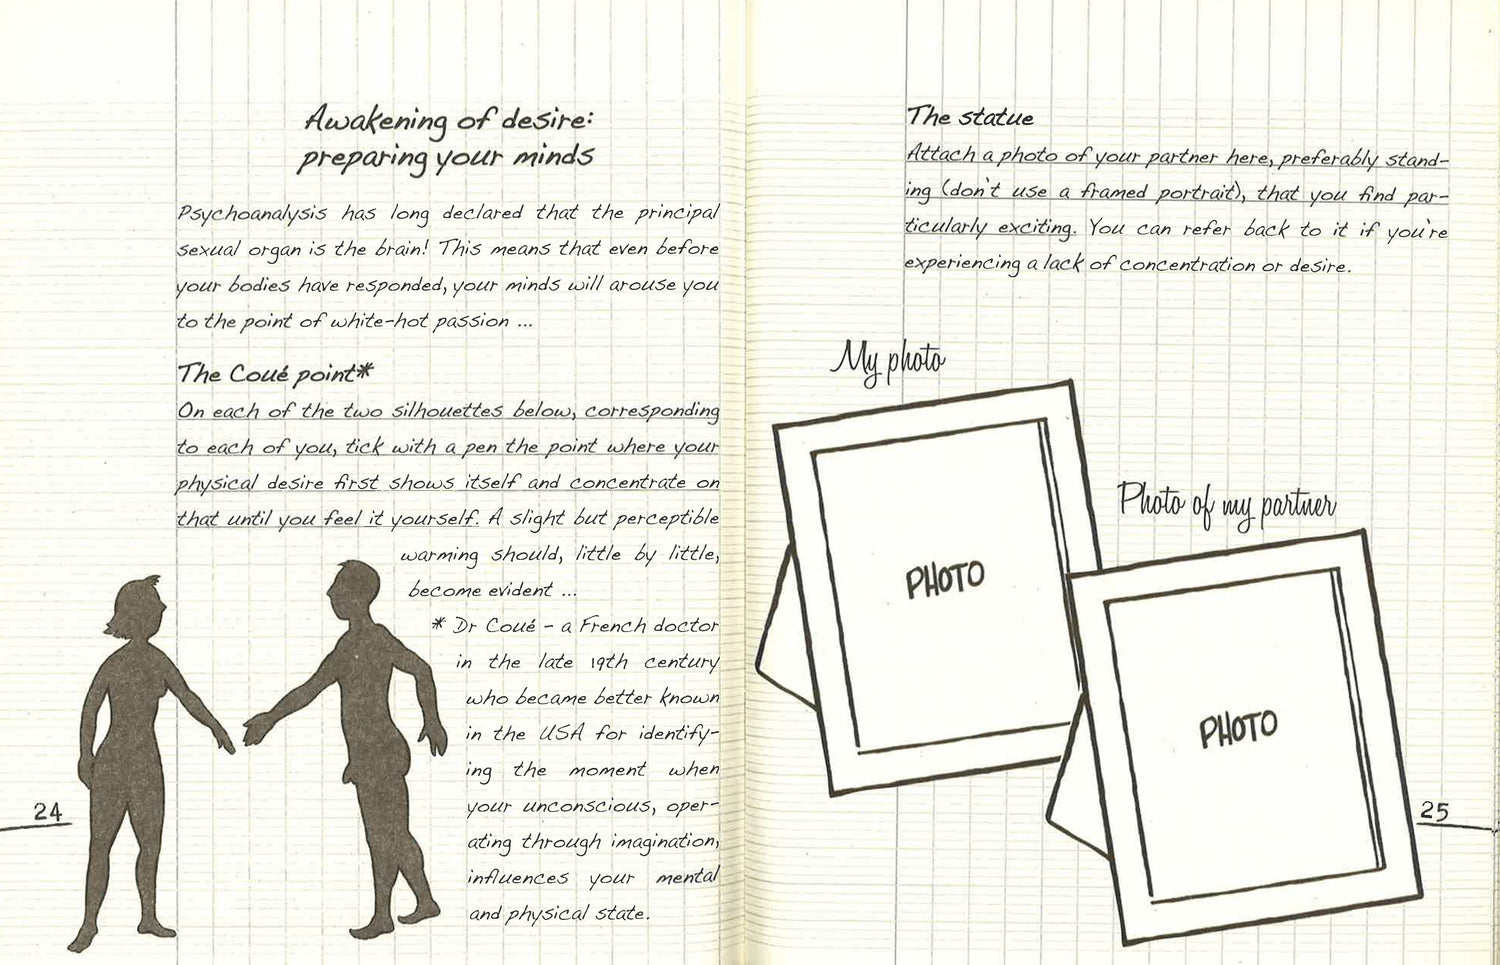 Awakening of desire:
preparing your minds
Psychoanalysis has long declared that the principal
sexual organ is the brain! This means that even before
your bodies have responded, your minds will arouse you
to the point of white-hot passion ...
The Coué point*
On each of the two silhouettes below, corresponding
to each of you, tick with a pen the point where your
physical desire first shows itself and concentrate on
that until you feel it yourself. A slight but perceptible
warming should, little by little,
become evident ...
* Dr Coué - a French doctor
in the late 19th century
who became better known
in the USA for identify-
ing the moment when
your unconscious, oper-
ating through imagination,
influences your mental
and physical state.
24
The statue
Attach a photo of your partner here, preferably stand-
ing (don't use a framed portrait), that you find par-
ticularly exciting. You can refer back to it if you're
experiencing a lack of concentration or desire.
My photo
PHOTO
Photo of my partner
PHOTO
25